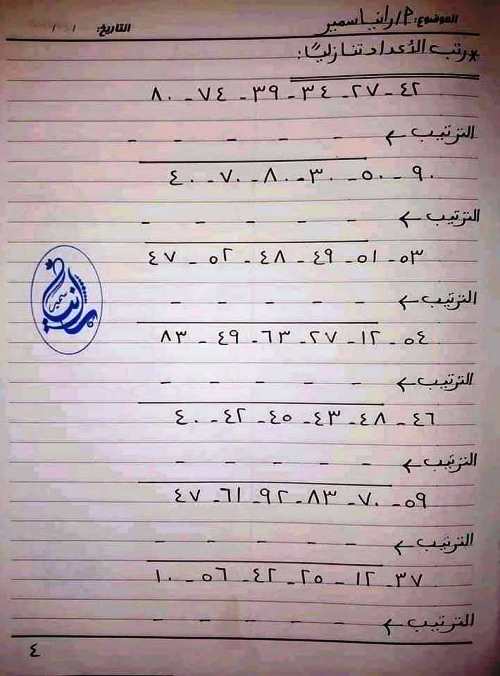 الموضوع: م/رانيا سمير التاريخ: / /
*رتب الأعداد تنازليًا:
٤٢ - ٢٧ - ٣٤ - ٣٩ - ٧٤ - ٨٠
الترتيب ← - - - - -
٩٠ - ٥٠ - ٣٠ - ٨٠ - ٧٠ - ٤٠
الترتيب ← - - - - -
٥٣ - ٥١ - ٤٩ - ٤٨ - ٥٢ - ٤٧
الترتيب ← - - - - -
رانيا سمير
٥٤ - ١٢ - ٢٧ - ٦٣ - ٤٩ - ٨٣
الترتيب ← - - - - -
٤٦ - ٤٨ - ٤٣ - ٤٥ - ٤٢ - ٤٠
الترتيب ← - - - - -
٥٩ - ٧٠ - ٨٣ - ٩٢ - ٦١ - ٤٧
الترتيب ← - - - - -
٣٧ - ١٢ - ٢٥ - ٤٢ - ٥٦ - ١٠
الترتيب ← - - - - -
٤